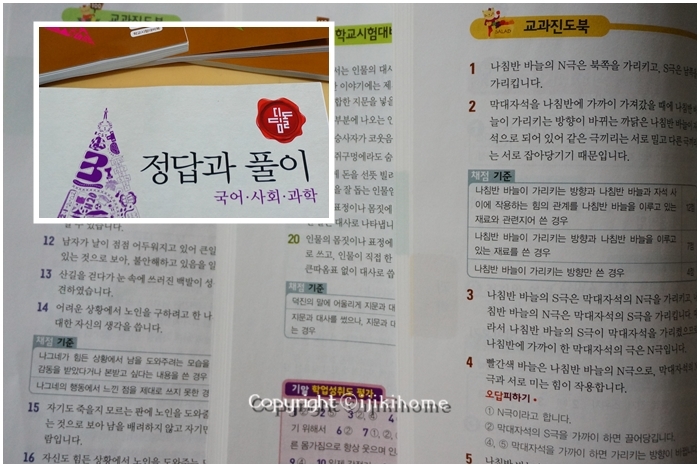 디딤돌
정답과 풀이
국어·사회·과학
12 남자가 날이 점점 어두워지고 있어 큰일
있는 것으로 보아, 불안해하고 있음을
13 산길을 걷다가 눈 속에 쓰러진 백발이
견하였습니다.
14 어려운 상황에서 노인을 구하려고 한 나
대한 자신의 생각을 씁니다.
채점 기준
나그네가 힘든 상황에서 남을 도와주려는 모습을
감동을 받았다거나 본받고 싶다는 내용을 쓴 경우
나그네의 행동에서 느낀 점을 제대로 쓰지 못한
15 자기도 죽을지 모르는 판에 노인을 도와
는 것으로 보아 남을 배려하지 않고 자기만
람입니다.
16 자신도 힘든 상황에서 노인을 도와주는
학교시험대비
서는 인물의 대사
이야기에는 제
합한 지문을 넣을
부분에 나오는 인
승사자가 코웃음
쥐구멍에라도 숨
돈을 선뜻 빌려
을 잘 돕는 인물
인물의 표정이나 몸짓이
은 대사로 나타냅니
20 인물의 몸짓이나 표정에
로 쓰고, 인물이 직접 한
큰따옴표 없이 대사로 씁
채점 기준
덕진의 말에 어울리게 지문과 대
지문과 대사를 썼으나, 지문과 대
는 경우
기말 학업성취도 평가
교과진도북
1 나침반 바늘의 N극은 북쪽을 가리키고, S극은 남쪽을
가리킵니다.
2 막대자석을 나침반에 가까이 가져갔을 때에 나침반 바
늘이 가리키는 방향이 바뀌는 까닭은 나침반 바늘이
석으로 되어 있어 같은 극끼리는 서로 밀고 다른 극끼리
는 서로 잡아당기기 때문입니다.
채점 기준
나침반 바늘이 가리키는 방향과 나침반 바늘과 자석 사
이에 작용하는 힘의 관계를 나침반 바늘을 이루고 있는
재료와 관련지어 쓴 경우
나침반 바늘이 가리키는 방향과 나침반 바늘을 이루고
있는 재료를 쓴 경우
나침반 바늘이 가리키는 방향만 쓴 경우
3 나침반 바늘의 S극은 막대자석의 N극을 가리키고,
침반 바늘의 N극은 막대자석의 S극을 가리킵니다.
라서 나침반 바늘의 S극이 막대자석을 가리켰으므로
나침반에 가까이 한 막대자석의 극은 N극입니다.
4 빨간색 바늘은 나침반 바늘의 N극으로, 막대자석의
극과 서로 미는 힘이 작용합니다.
오답피하기
① N극이라고 합니다.
② 막대자석의 S극을 가까이 하면 끌어당깁니다.
④, ⑤ 막대자석을 가까이 하면 가리키는 방향이 바뀝니
5
Copyright ©ijikihome